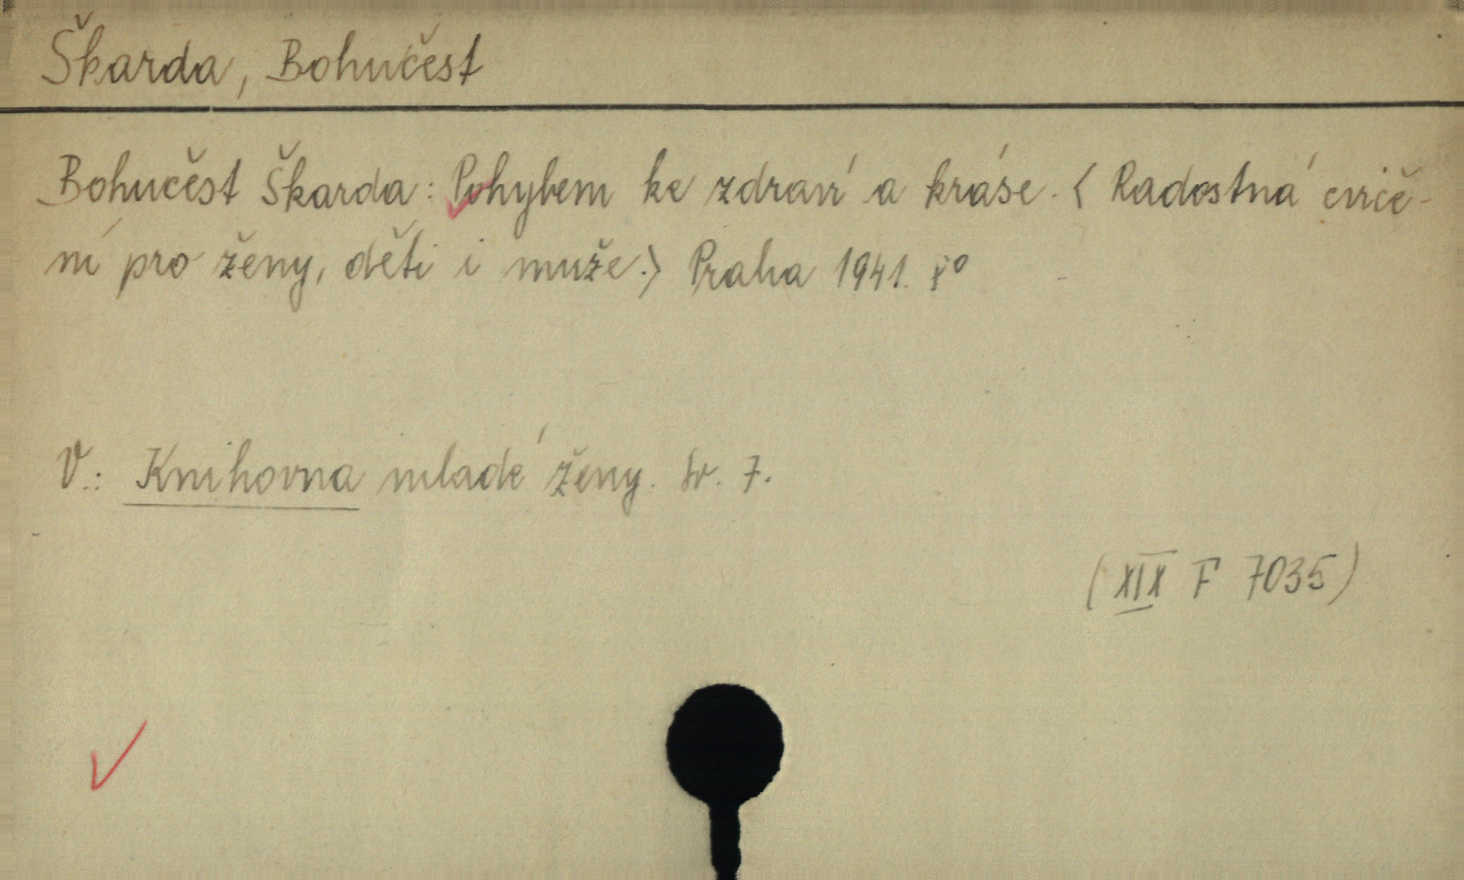 Škarda, Bohučest
Bohučest Škarda: Pohybem ke zdraví a kráse. < Radostná cviče-
ní pro ženy, děti i muže.> Praha 1941. 8°
V.: Knihovna mladé ženy. Sv. 7.
(XIX F 7035)